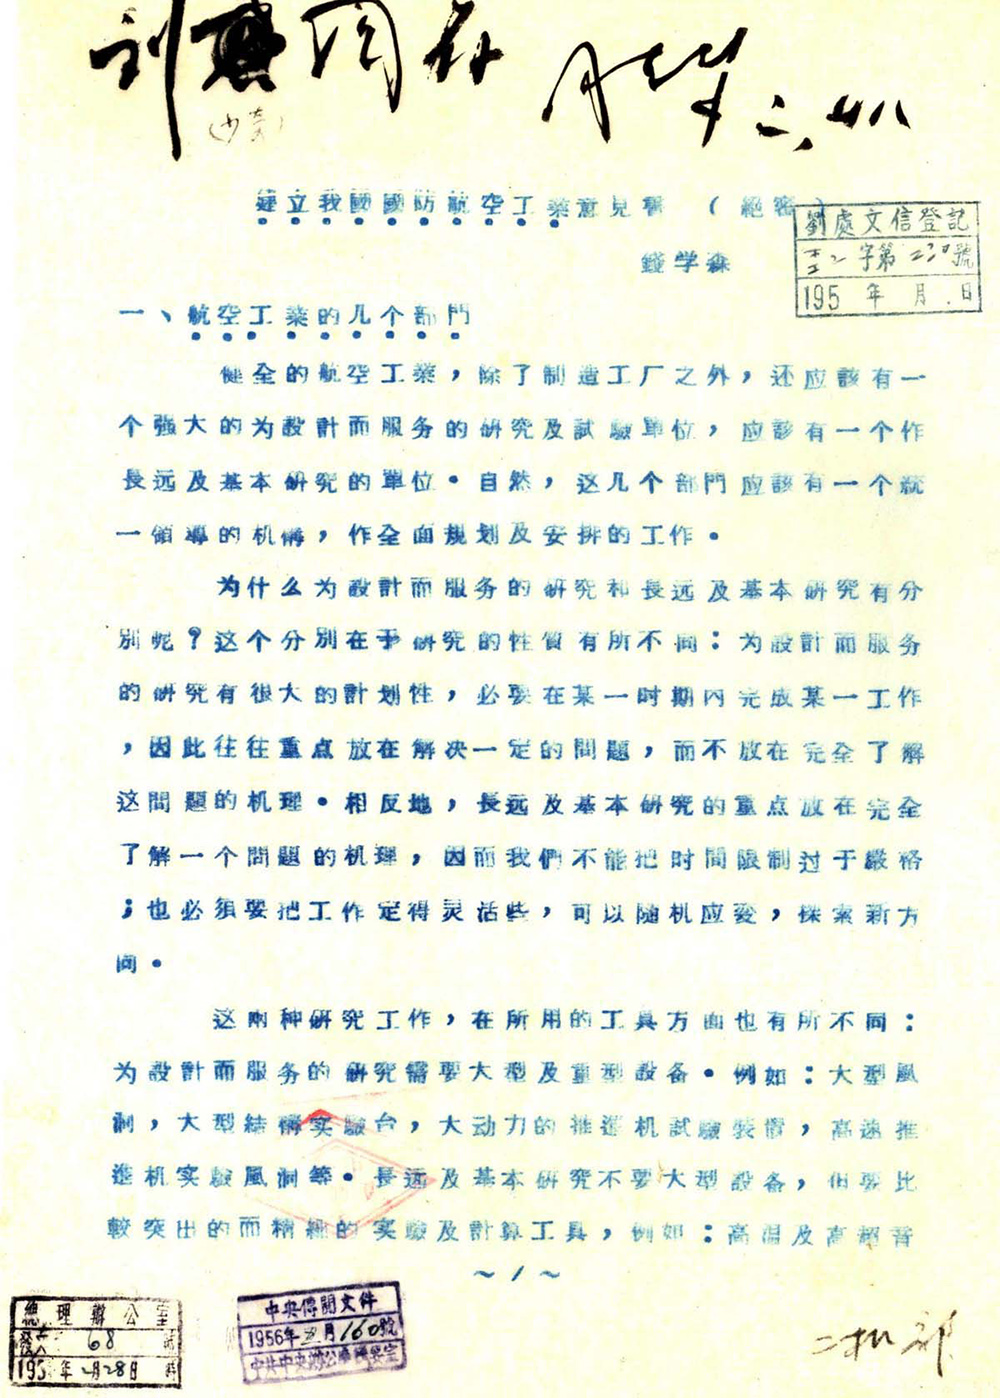 建立我國國防航空工業意見書（絕密）
錢学森
劉處文信登記
字第二三〇號
195 年 月 日
一、航空工業的几个部門
健全的航空工業，除了制造工厂之外，还应該有一
个强大的为設計而服务的研究及試驗單位，应該有一个作
長远及基本研究的單位。自然，这几个部門应該有一个統
一領導的机構，作全面規划及安排的工作。
为什么为設計而服务的研究和長远及基本研究有分
別呢？这个分別在于研究的性質有所不同：为設計而服务
的研究有很大的計划性，必要在某一时期內完成某一工作
，因此往往重点放在解决一定的問題，而不放在完全了解
这問題的机理。相反地，長远及基本研究的重点放在完全
了解一个問題的机理，因而我們不能把时間限制过于嚴格
；也必須要把工作定得灵活些，可以随机应变，探索新方
向。
这兩种研究工作，在所用的工具方面也有所不同：
为設計而服务的研究需要大型及重型設备。例如：大型風
洞，大型結構实驗台，大动力的推進机試驗裝置，高速推
進机实驗風洞等。長远及基本研究不要大型設备，但要比
較突出的而精細的实驗及計算工具，例如：高温及高超音
～1～
總理辦公室
68 號
195 年2月28日
中央傳閱文件
1956年 月160號
中共中央办公廳機要室
二机部